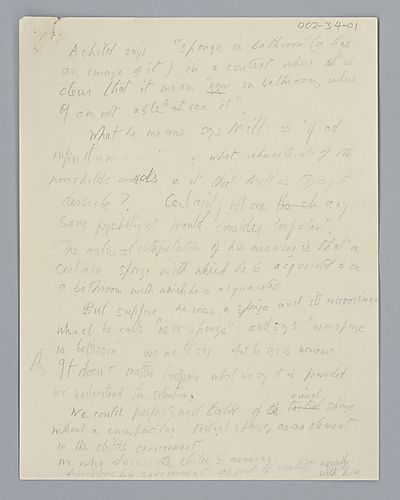 002-34-01
A child says "sponge in bathroom" (or has
an image of it) in a context where it is
clear that it means "now in bathroom, where
I am not able to see it"
What he means says Mill is "if ad
infinitum ... " . what characteristic of the
poor childs words is it that Mill is trying to
describe? Certainly not one any
sane psychologist would consider important.
The natural interpretation of his meaning is that a
certain sponge with which he is acquainted is in
a bathroom with which he is acquainted
But suppose he sees a sponge and its mirror image
which he calls "new sponge" and says "new sponge
in bathroom" are we to say what he says is nonsense
It doesn't matter twopence what we say it is provided
we understand the situation.
We could perfectly well talk of visual sponge
without a corresponding tactual sponge, as an element
in the childs environment
we who discuss the child's meaning
his environment as part of reality equally
with him